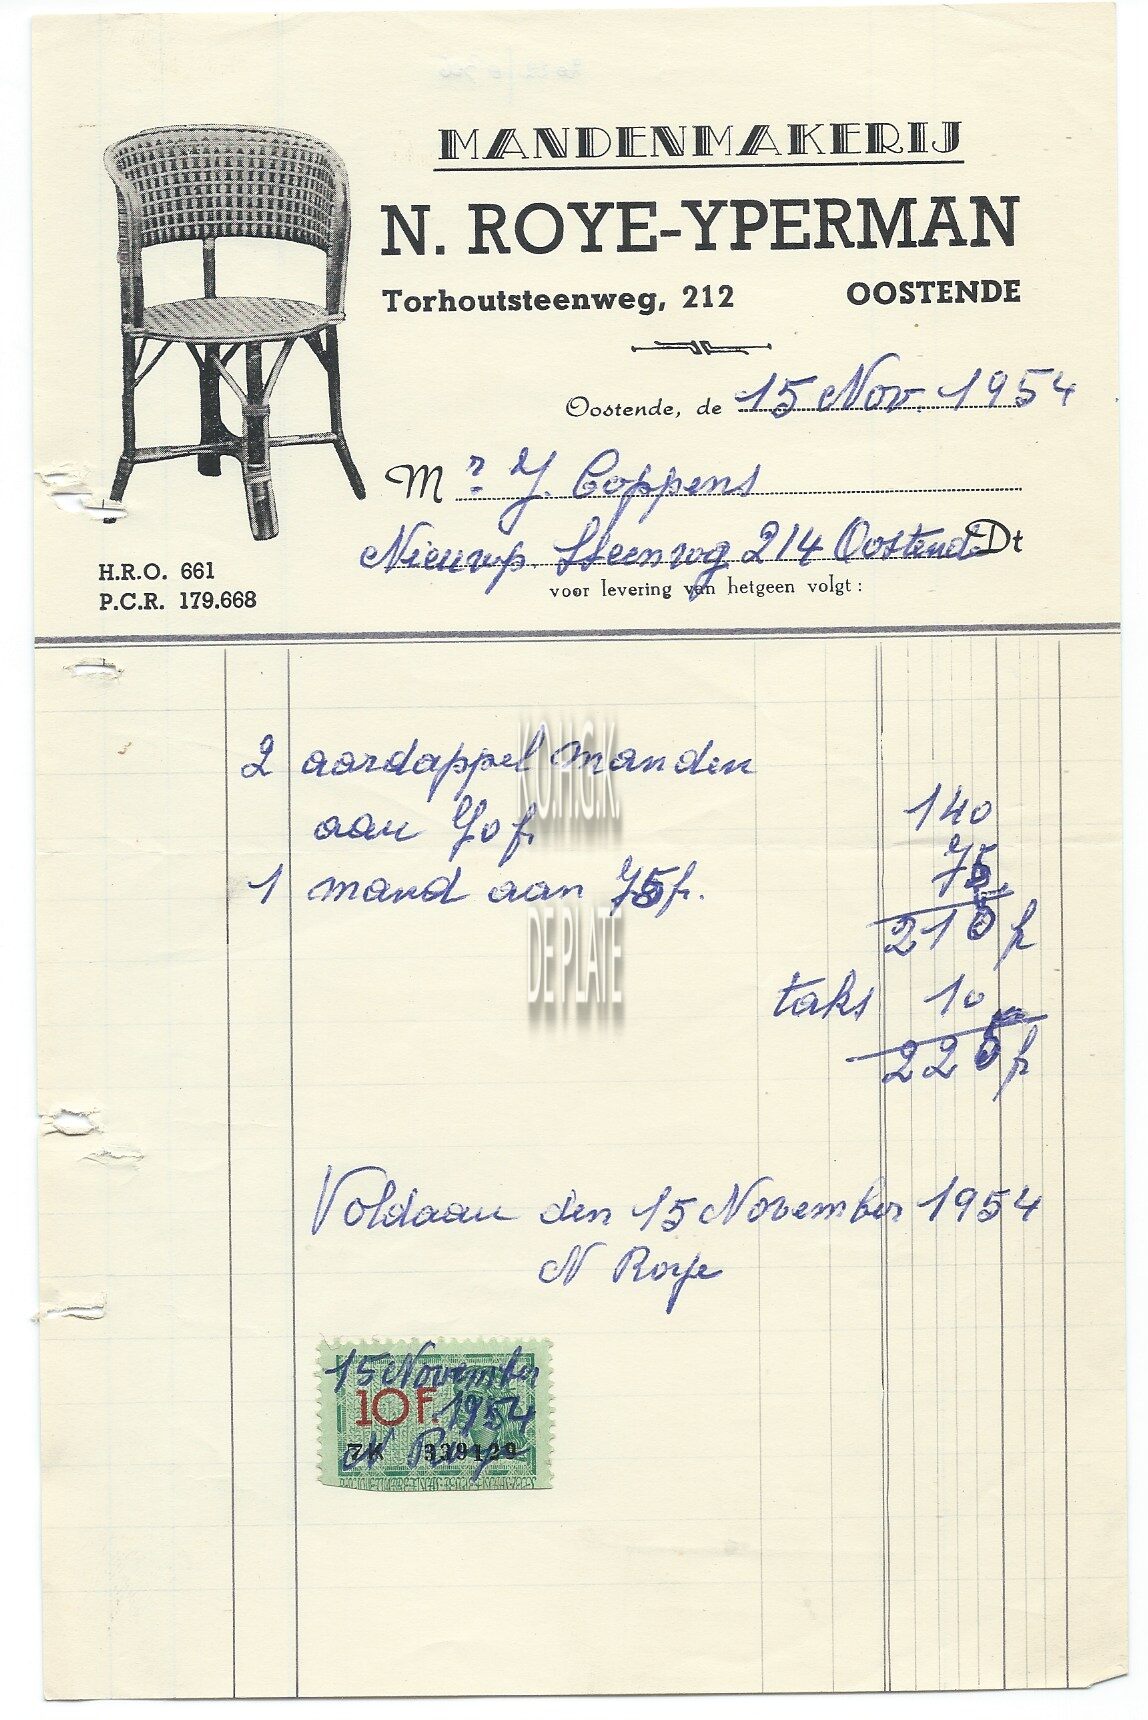 MANDENMAKERIJ
N. ROYE-YPERMAN
Torhoutsteenweg, 212 OOSTENDE
Oostende, de 15 Nov. 1954
Mr Y. Coppens
Nieuwp. Steenweg 214 Oostende Dt
voor levering van hetgeen volgt :
H.R.O. 661
P.C.R. 179.668
2 aardappel manden
aan 70 f. 140
1 mand aan 75 fr. 75
215 fr
taks 10
225 fr
K.O.H.G.K.
DE PLATE
Voldaan den 15 November 1954
N Roye
15 November
10 F. 1954
N Roye